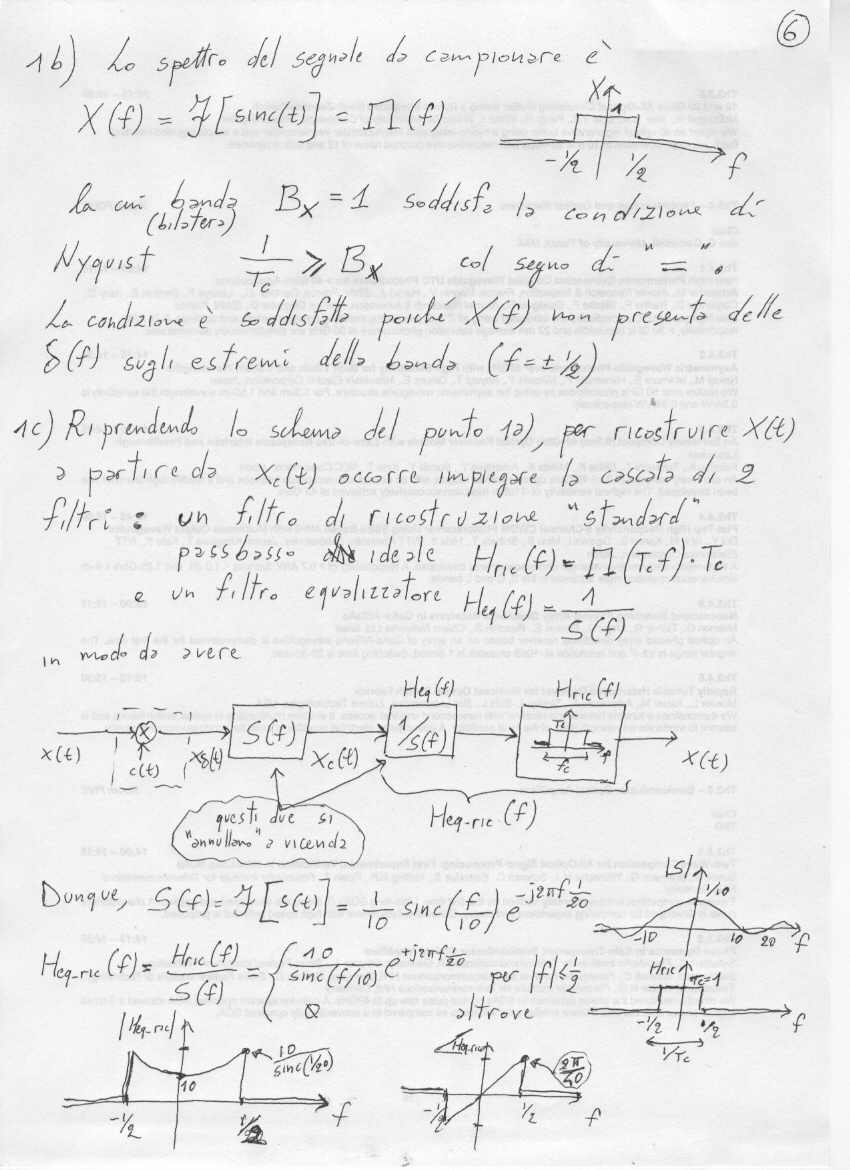 6
1b) Lo spettro del segnale da campionare è
X(f) = ℱ[sinc(t)] = Π(f)
X
1
-1/2
1/2
f
la cui banda (bilatera) B_X = 1 soddisfa la condizione di
Nyquist 1/T_c ≥ B_X col segno di "=".
La condizione è soddisfatta poiché X(f) non presenta delle
δ(f) sugli estremi della banda (f = ± 1/2)
1c) Riprendendo lo schema del punto 1a), per ricostruire X(t)
a partire da x_c(t) occorre impiegare la cascata di 2
filtri: un filtro di ricostruzione "standard"
passbasso ideale H_ric(f) = Π(T_c f) · T_c
e un filtro equalizzatore H_eq(f) = 1/S(f)
in modo da avere
H_eq(f)
H_ric(f)
x(t)
X
c(t)
x_δ(t)
S(f)
x_c(t)
1/S(f)
T_c
f
f_c
x(t)
H_eq-ric(f)
questi due si
"annullano" a vicenda
Dunque, S(f) = ℱ[s(t)] = 1/10 sinc(f/10) e^{-j2πf 1/20}
|S|
1/10
-10
10
20
f
H_eq-ric(f) = H_ric(f)/S(f) = { 10/sinc(f/10) e^{+j2πf 1/20} per |f| ≤ 1/2
0 altrove
H_ric
T_c=1
-1/2
1/2
f
1/T_c
|H_eq-ric|
10/sinc(1/20)
10
-1/2
1/2
f
∠H_eq-ric
2π/40
-1/2
1/2
f